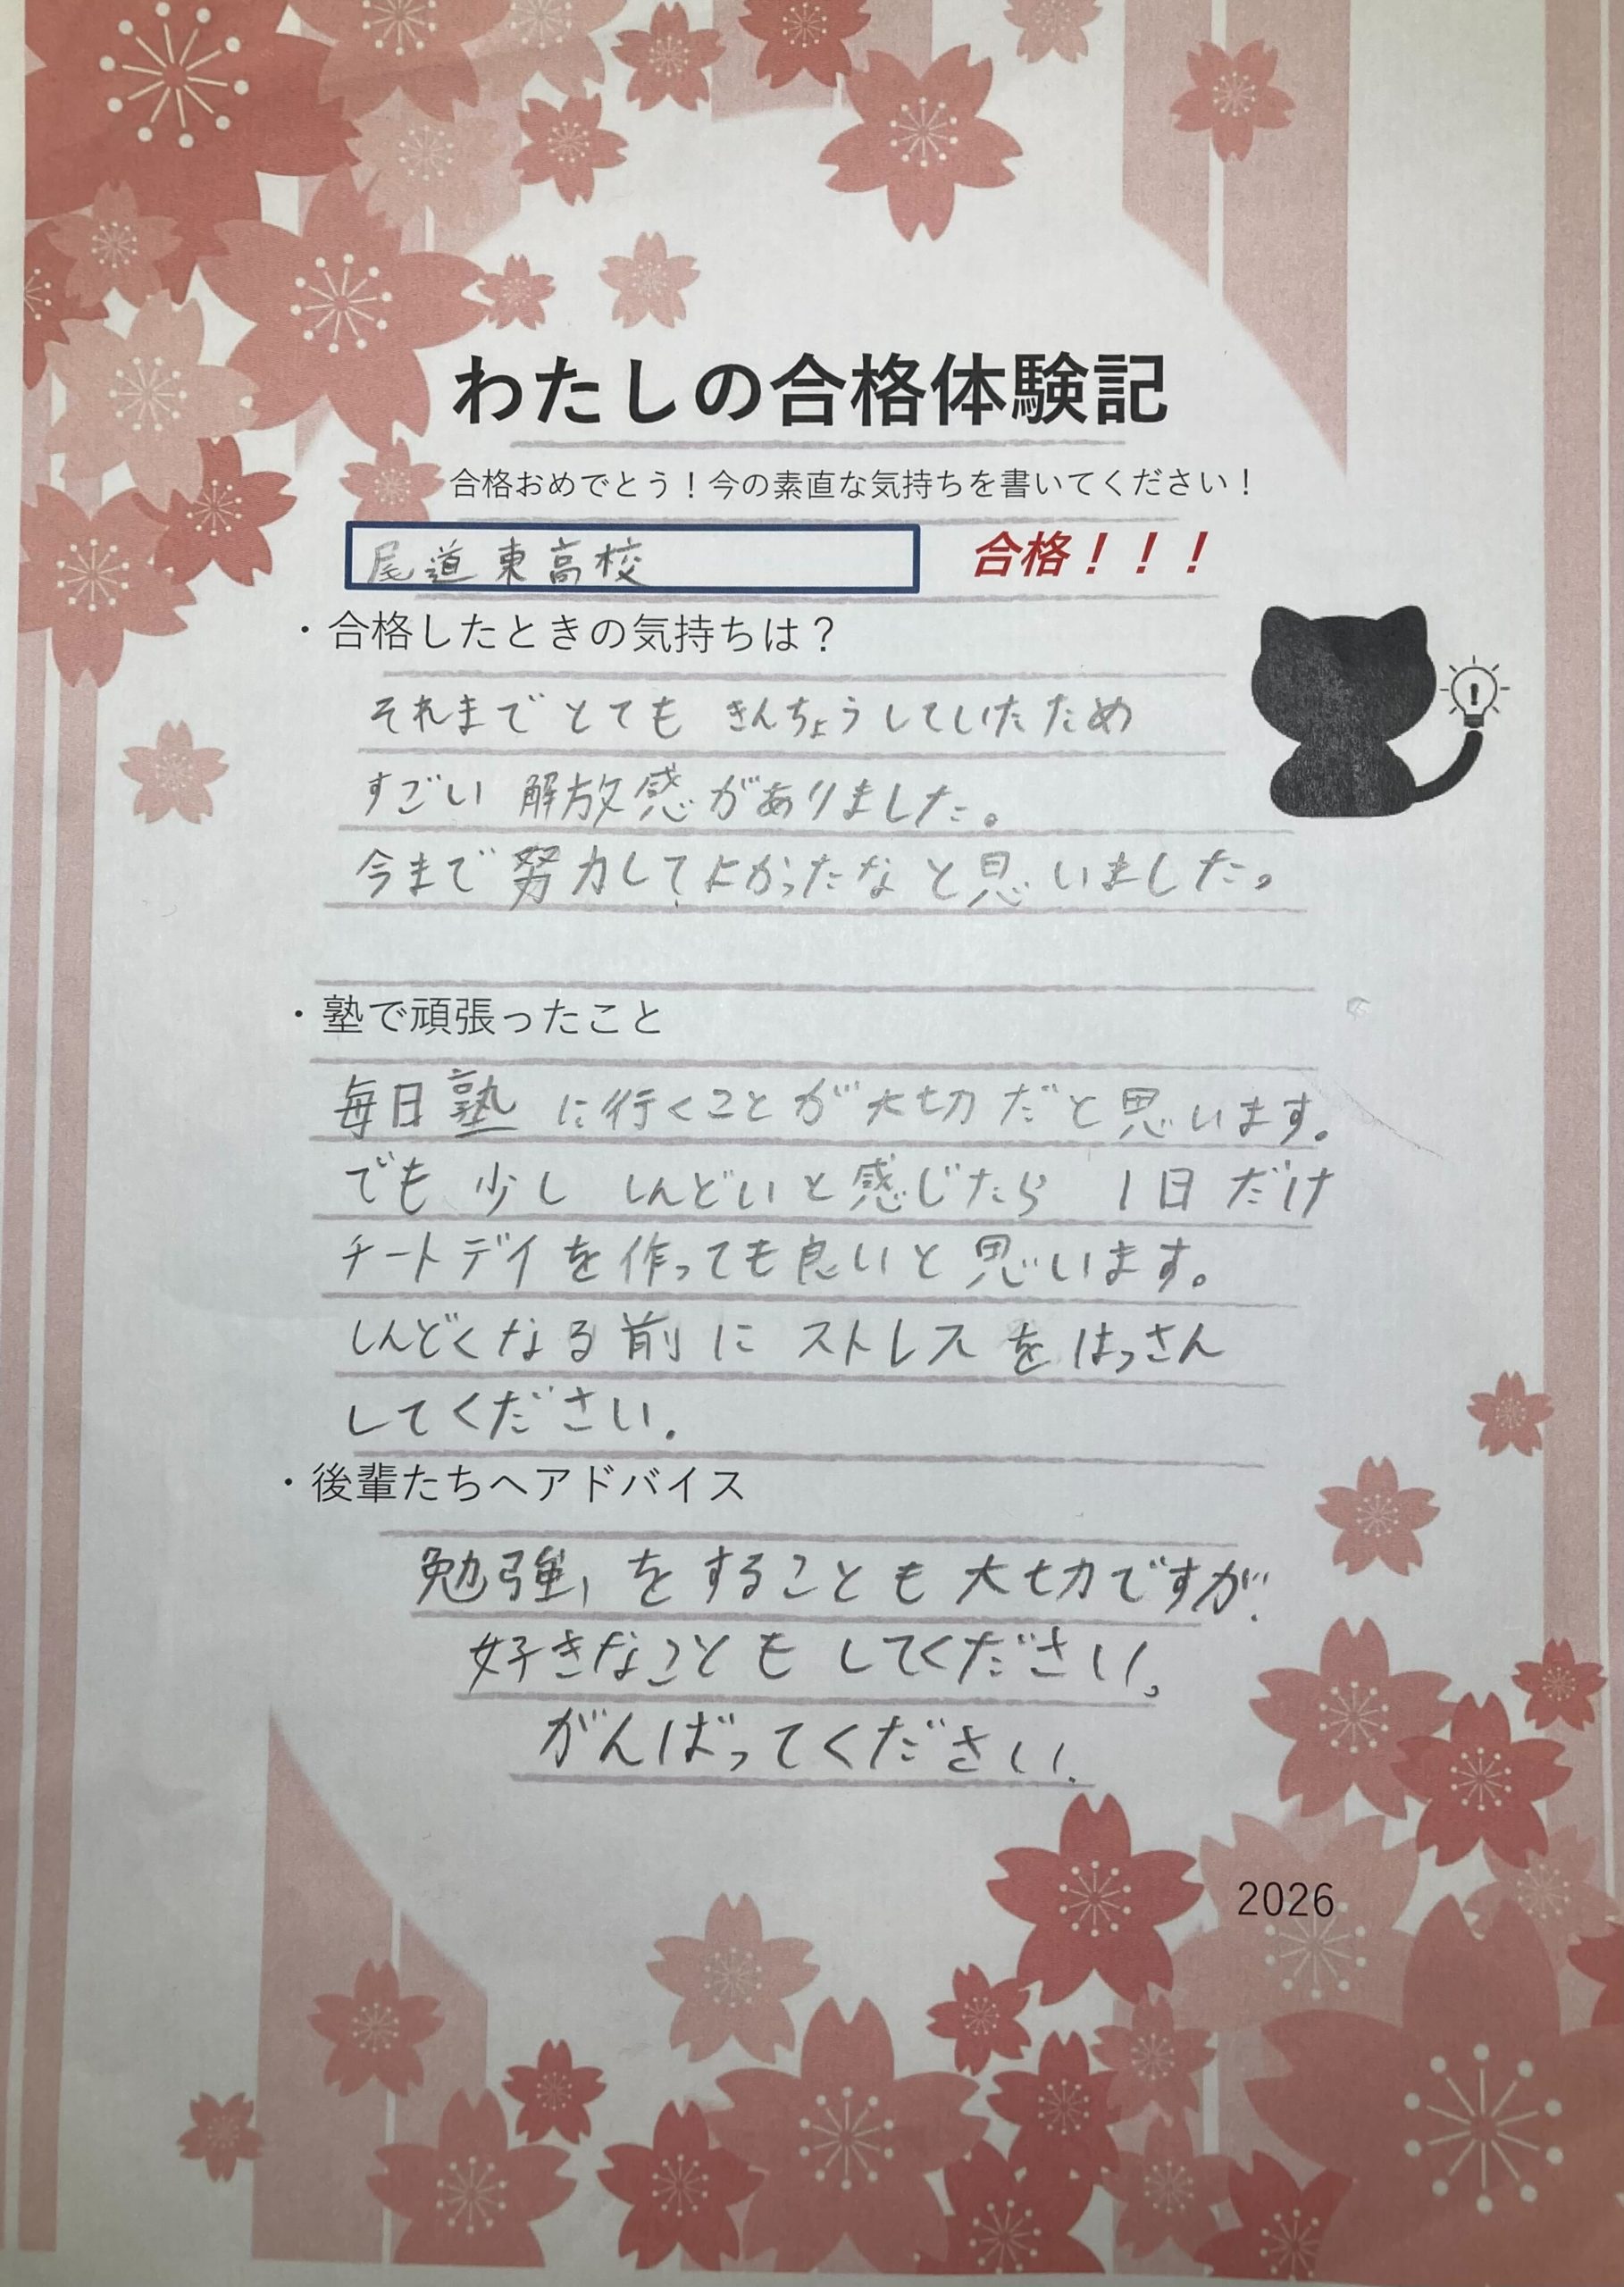 わたしの合格体験記
合格おめでとう！今の素直な気持ちを書いてください！
尾道東高校 合格！！！
・合格したときの気持ちは？
それまでとても きんちょうしていたため
すごい 解放感がありました。
今まで努力してよかったなと思いました。
・塾で頑張ったこと
毎日塾に行くことが大切だと思います。
でも 少し しんどいと感じたら 1日だけ
チートデイを作っても良いと思います。
しんどくなる前に ストレスをはっさん
してください。
・後輩たちへアドバイス
勉強をすることも大切ですが、
好きなことも してください。
がんばってください。
2026